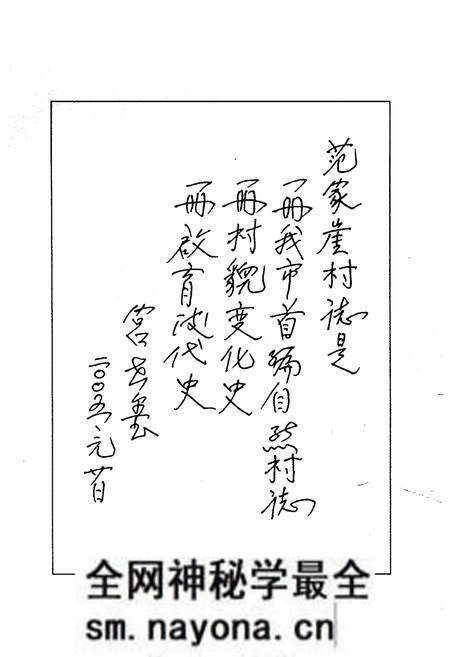 范家崖村誌是
一册我市首编自然村誌
一册村貌变化史
一册啟育後代史
二〇〇五元
全网神秘学最全
sm.nayona.cn